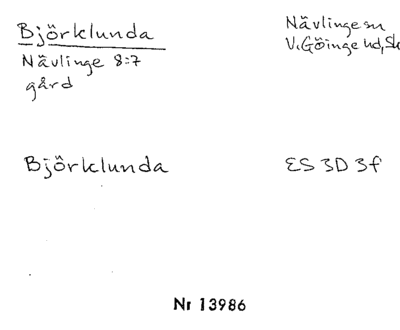 Björklunda
Nävlinge 8:7
gård
Nävlinge sn
V. Göinge hd, Sk
Björklunda
ES 3D 3f
Nr 13986